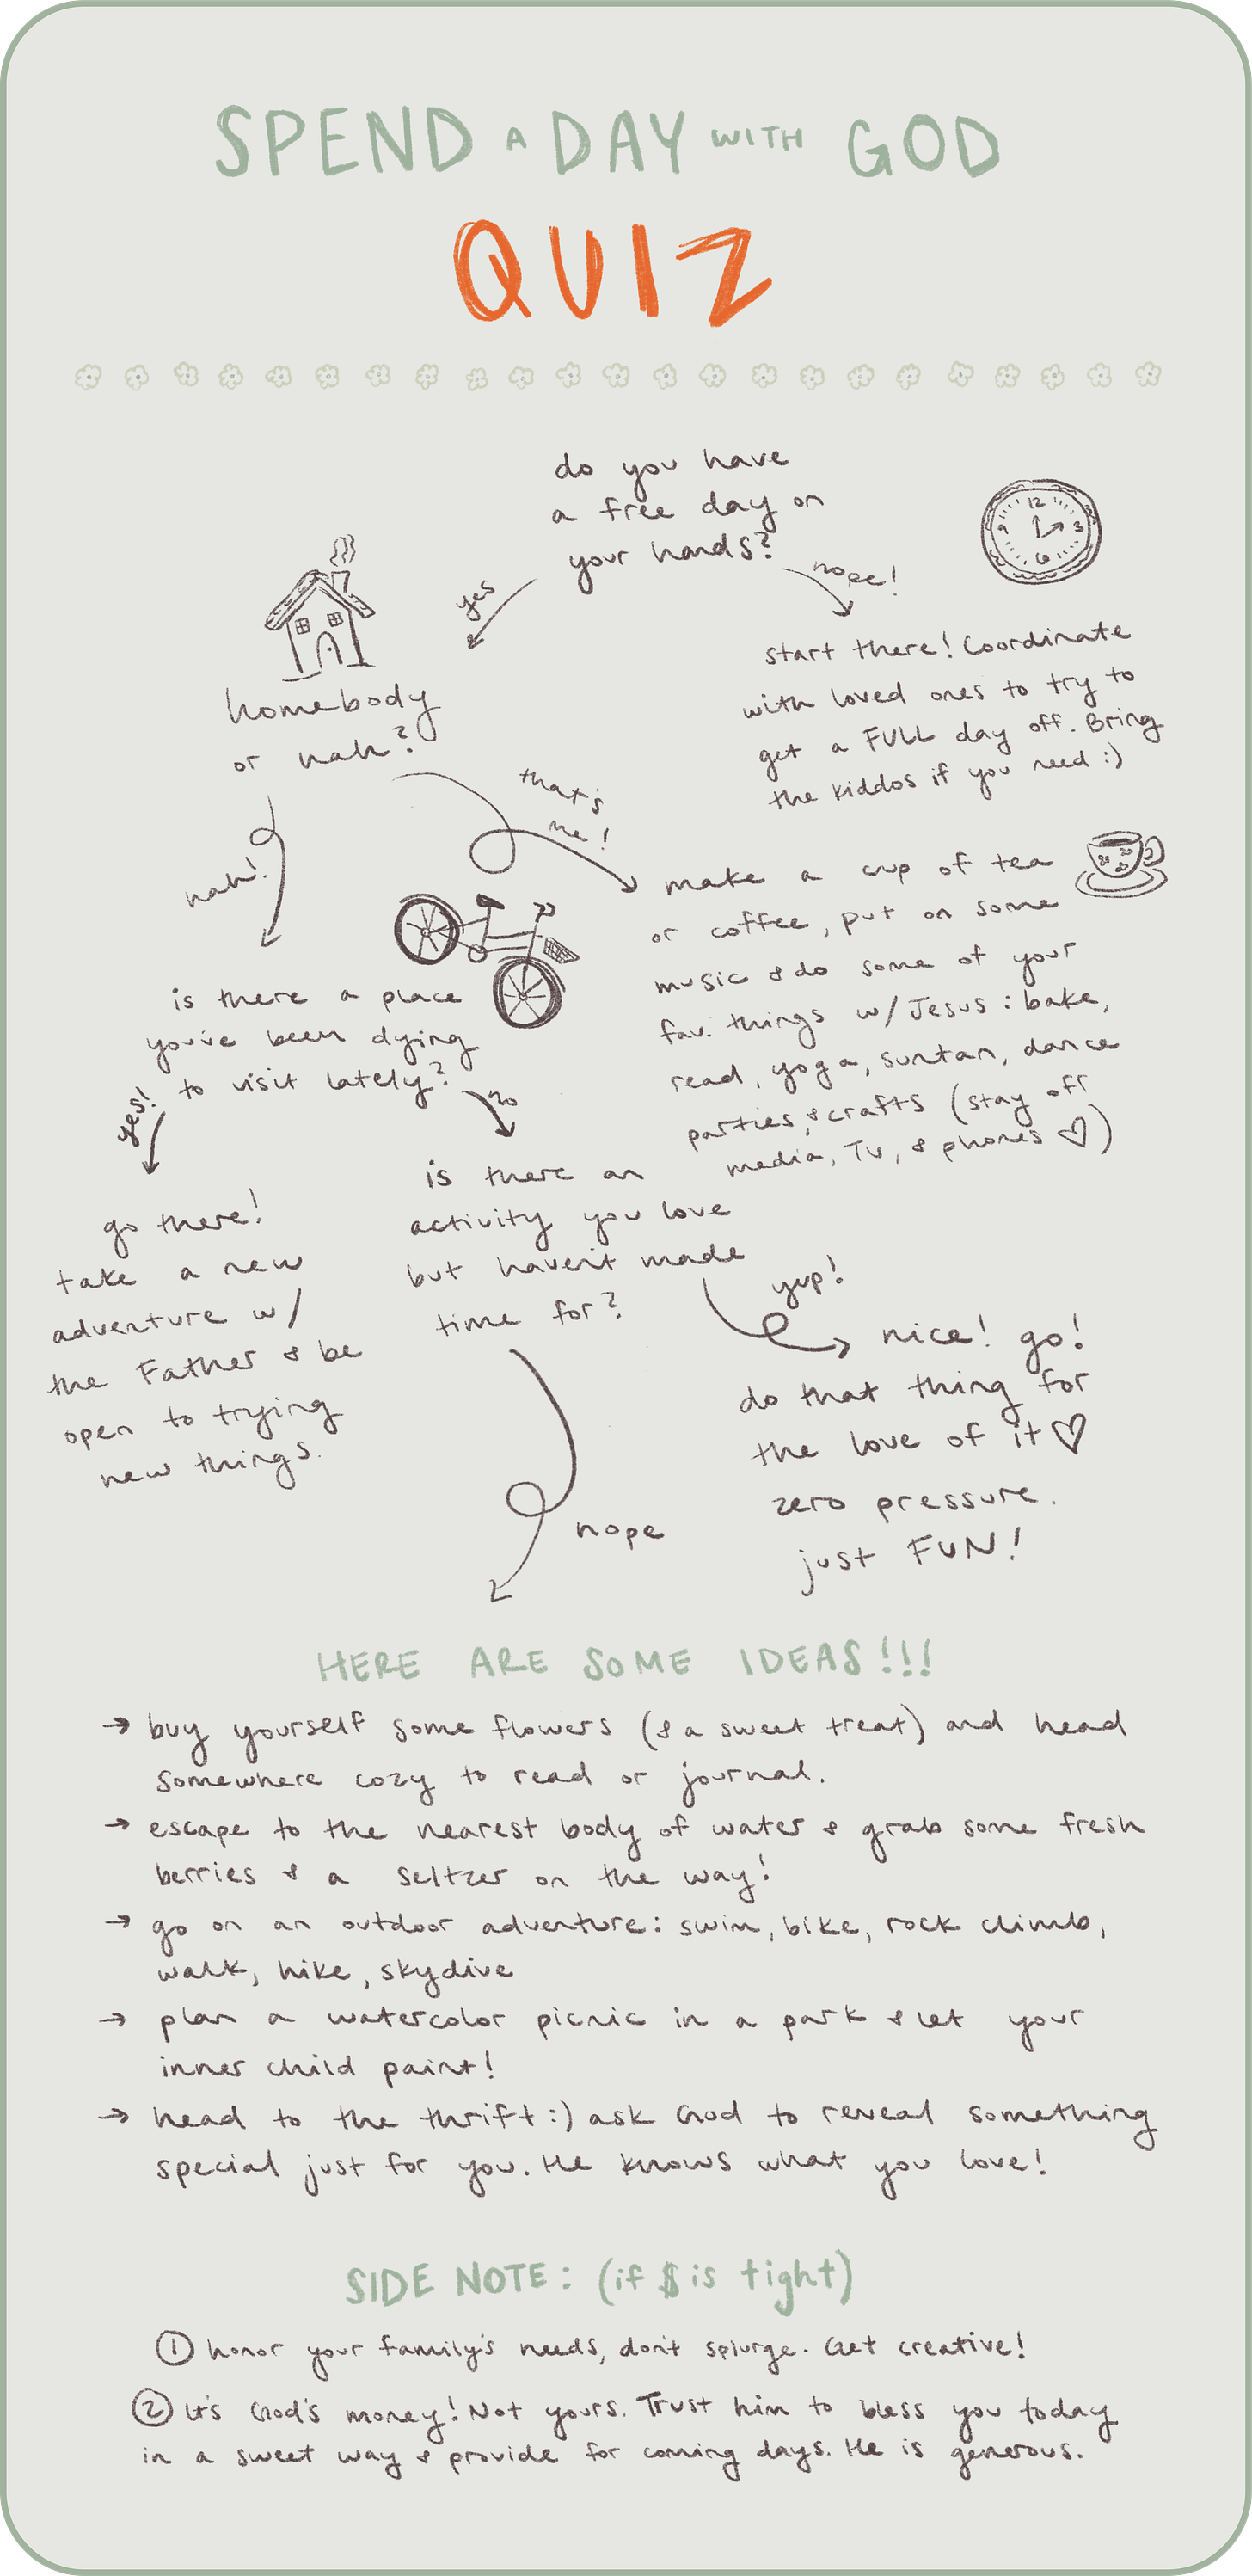 SPEND A DAY WITH GOD
QUIZ
do you have
a free day on
your hands?
yes
nope!
12
3
6
9
start there! Coordinate
with loved ones to try to
get a FULL day off. Bring
the kiddos if you need :)
homebody
or nah?
that's
me!
nah!
make a cup of tea
or coffee, put on some
music & do some of your
fav. things w/ Jesus: bake,
read, yoga, suntan, dance
parties, & crafts (stay off
media, TV, & phones ♡)
is there a place
you've been dying
to visit lately?
yes!
no
go there!
take a new
adventure w/
the Father & be
open to trying
new things.
is there an
activity you love
but haven't made
time for?
yup!
nice! go!
do that thing for
the love of it ♡
zero pressure.
just FUN!
nope
HERE ARE SOME IDEAS!!!
→ buy yourself some flowers (& a sweet treat) and head
somewhere cozy to read or journal.
→ escape to the nearest body of water & grab some fresh
berries & a seltzer on the way!
→ go on an outdoor adventure: swim, bike, rock climb,
walk, hike, skydive
→ plan a watercolor picnic in a park & let your
inner child paint!
→ head to the thrift :) ask God to reveal something
special just for you. He knows what you love!
SIDE NOTE: (if $ is tight)
① honor your family's needs, don't splurge. Get creative!
② It's God's money! Not yours. Trust him to bless you today
in a sweet way & provide for coming days. He is generous.